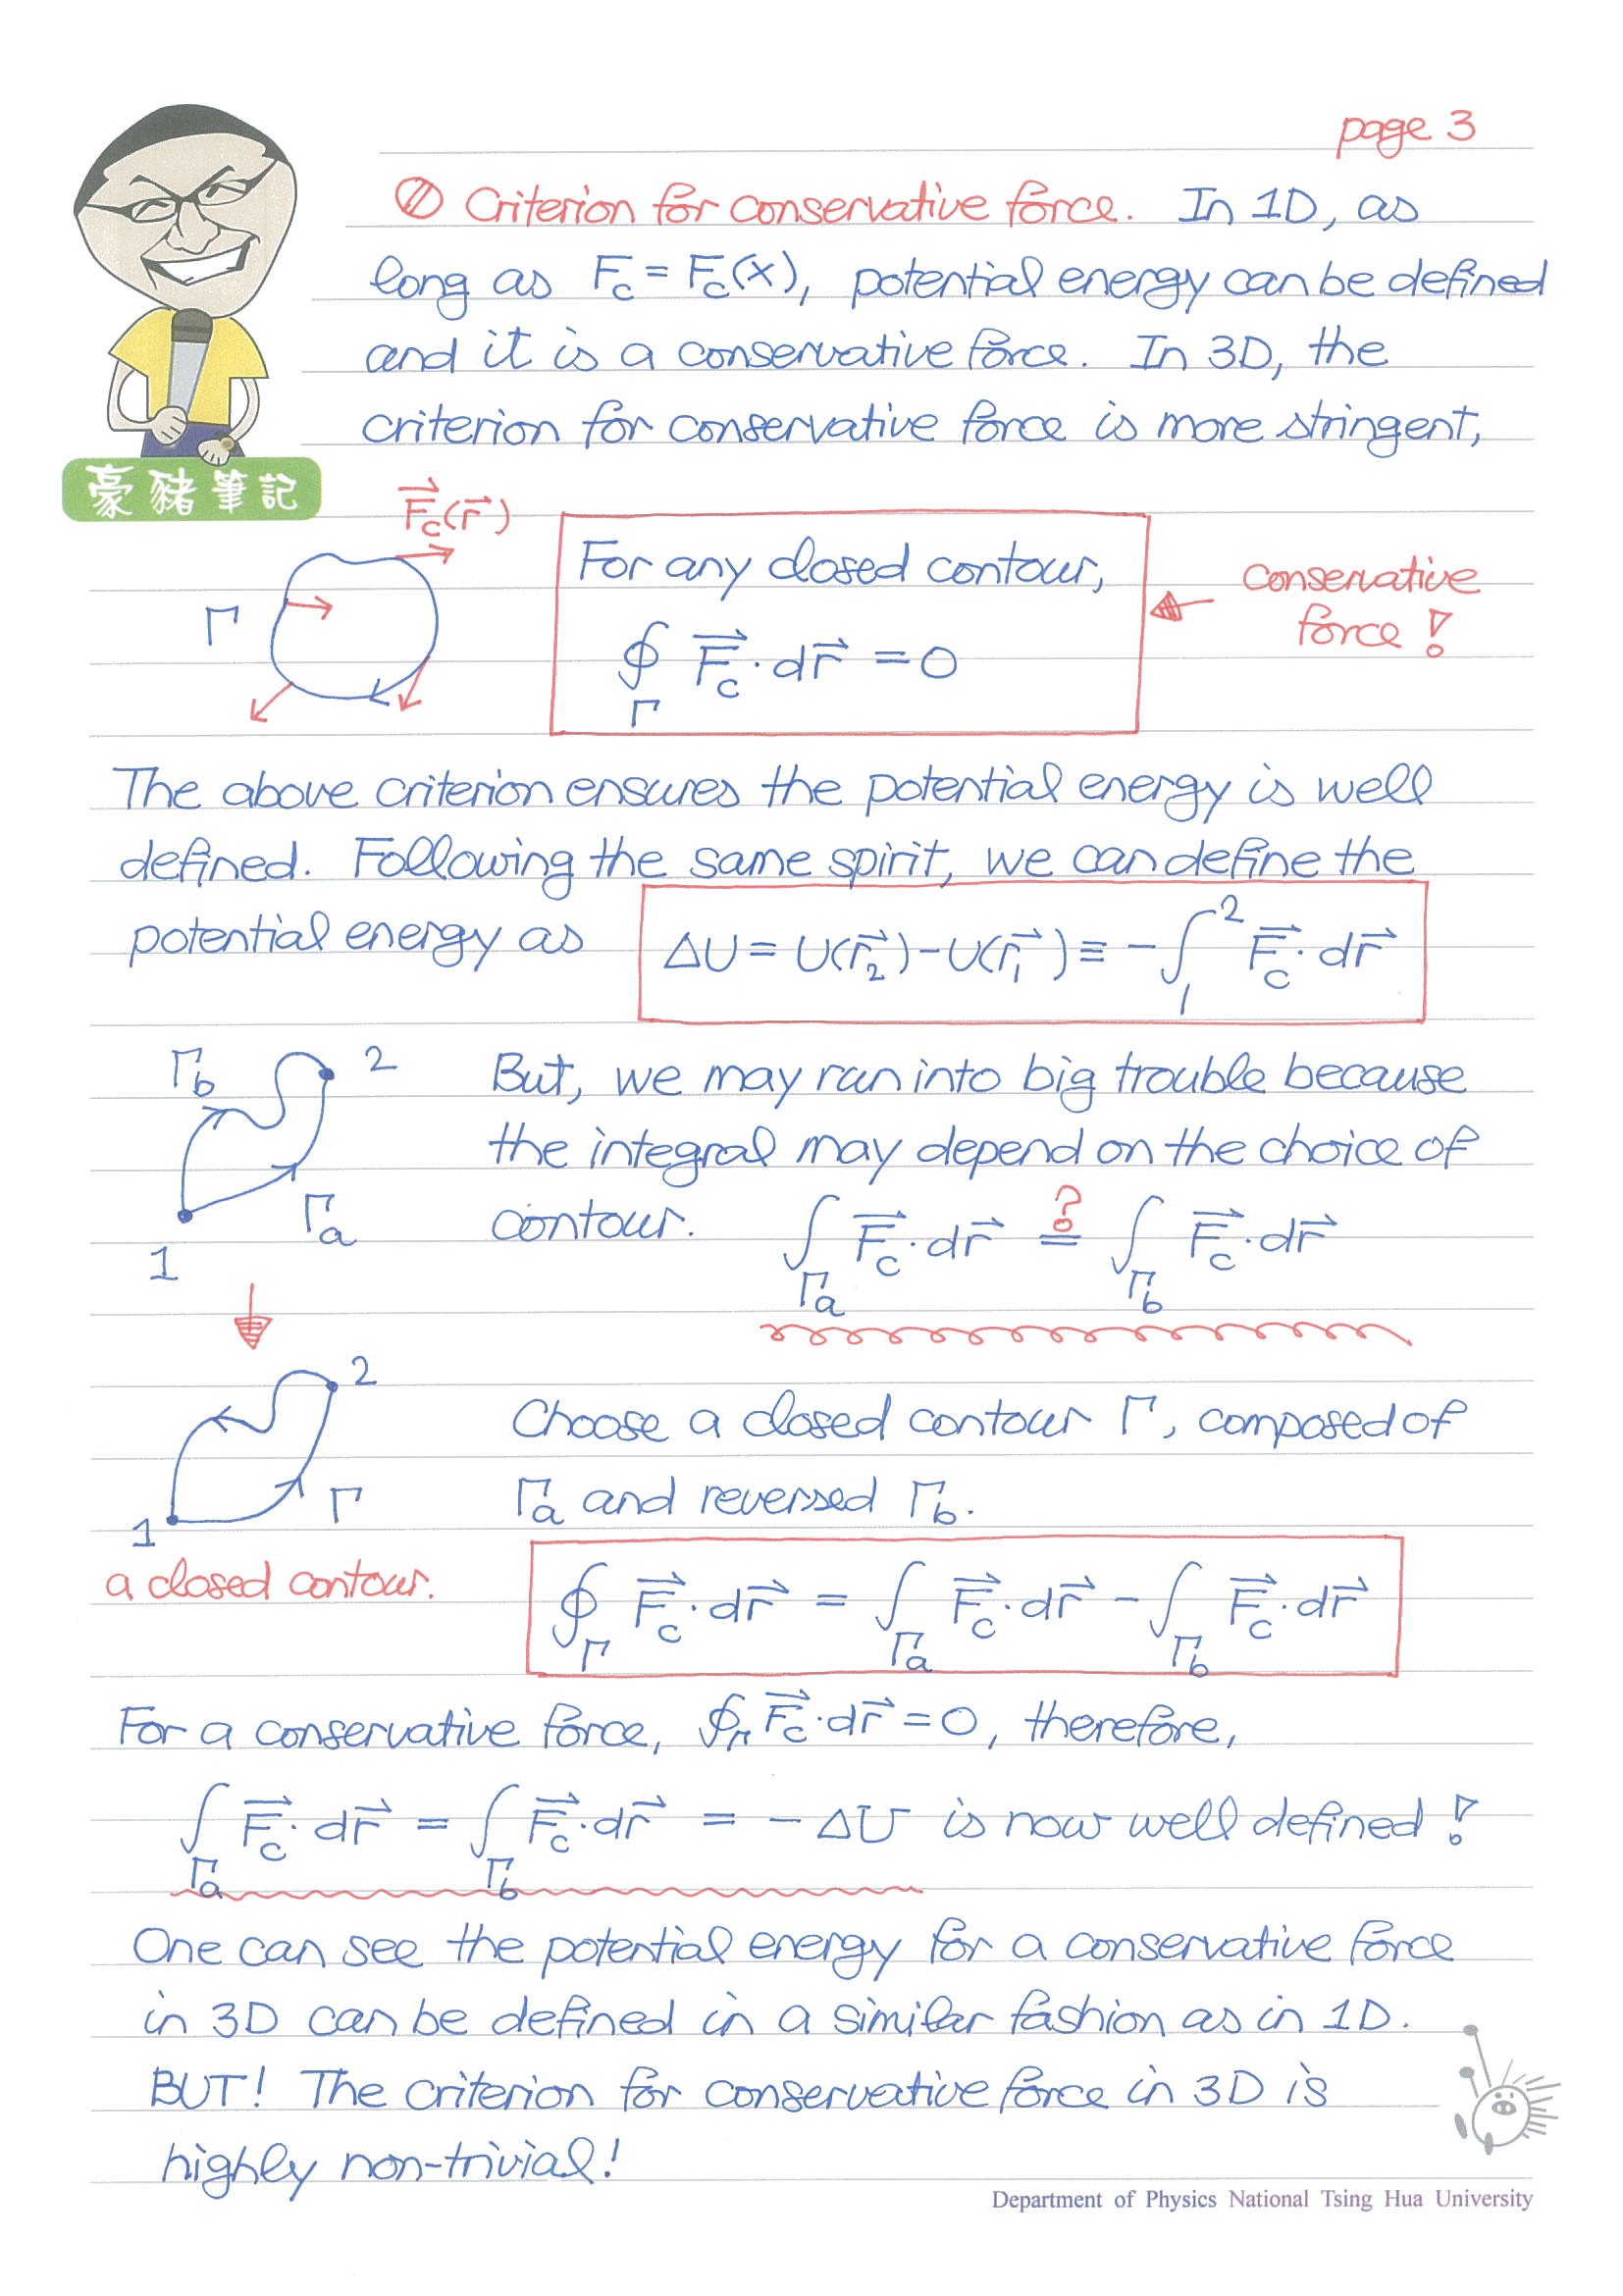 page 3
Criterion for conservative force. In 1D, as
long as F_c = F_c(x), potential energy can be defined
and it is a conservative force. In 3D, the
criterion for conservative force is more stringent,
豪豬筆記
F⃗_c(r⃗)
Γ
For any closed contour,
∮_Γ F⃗_c · dr⃗ = 0
conservative
force!
The above criterion ensures the potential energy is well
defined. Following the same spirit, we can define the
potential energy as ΔU = U(r⃗_2) - U(r⃗_1) ≡ -∫_1^2 F⃗_c · dr⃗
Γ_b 2
1 Γ_a
But, we may run into big trouble because
the integral may depend on the choice of
contour. ∫_Γa F⃗_c · dr⃗ ?= ∫_Γb F⃗_c · dr⃗
2
1 Γ
a closed contour.
Choose a closed contour Γ, composed of
Γ_a and reversed Γ_b.
∮_Γ F⃗_c · dr⃗ = ∫_Γa F⃗_c · dr⃗ - ∫_Γb F⃗_c · dr⃗
For a conservative force, ∮_Γ F⃗_c · dr⃗ = 0, therefore,
∫_Γa F⃗_c · dr⃗ = ∫_Γb F⃗_c · dr⃗ = -ΔU is now well defined!
One can see the potential energy for a conservative force
in 3D can be defined in a similar fashion as in 1D.
BUT! The criterion for conservative force in 3D is
highly non-trivial!
Department of Physics National Tsing Hua University